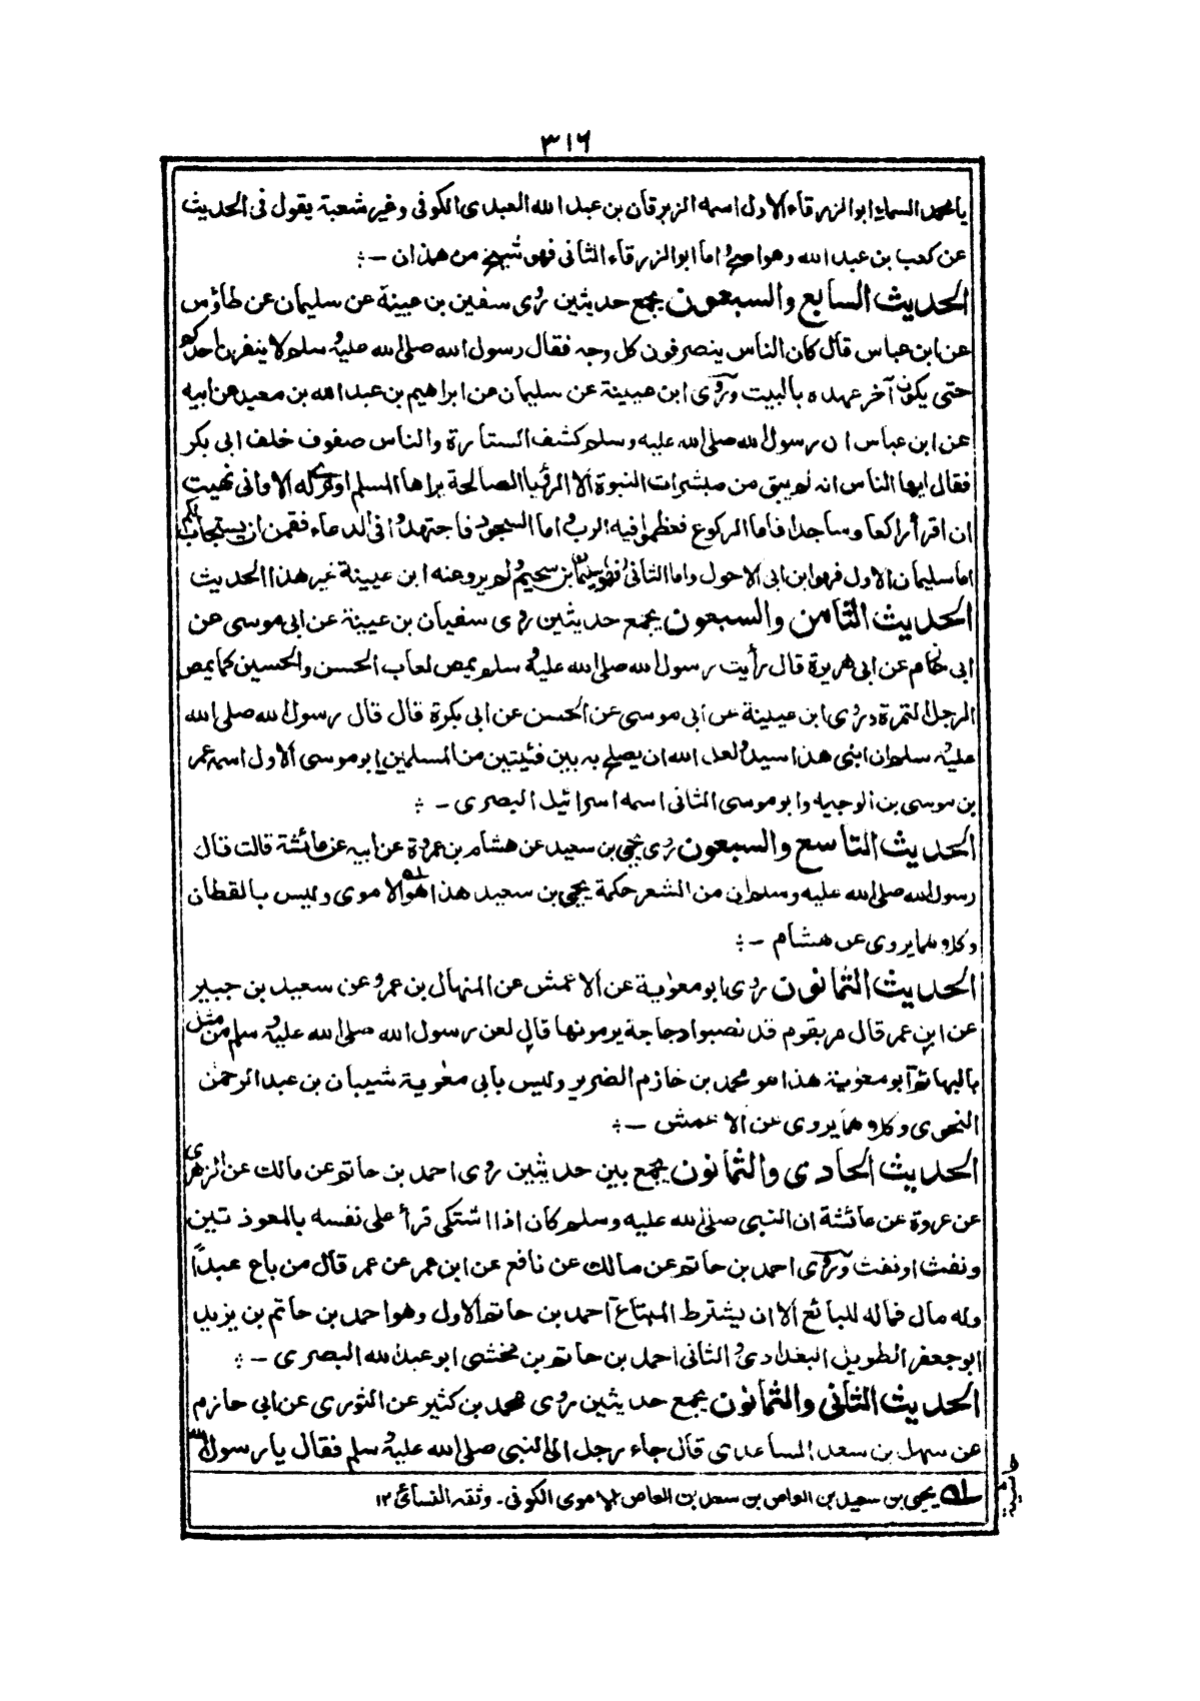 ٣١٦
يا محمد السماء ابو الزرقاء الاول اسمه الزبرقان بن عبد الله العبدى الكوفى وغير شعبة يقول فى الحديث
عن كعب بن عبد الله وهو اصح واما ابو الزرقاء الثانى فهو شيخ من همذان -:
الحديث السابع والسبعون يجمع حديثين روى سفين بن عيينة عن سليمان عن طاؤس
عن ابن عباس قال كان الناس ينصرفون كل وجه فقال رسول الله صلى الله عليه وسلم لا ينفرن احدكم
حتى يكون آخر عهده بالبيت وروى ابن عيينة عن سليمان عن ابراهيم بن عبد الله بن معبد عن ابيه
عن ابن عباس ان رسول الله صلى الله عليه وسلم كشف الستارة والناس صفوف خلف ابى بكر
فقال ايها الناس انه لم يبق من مبشرات النبوة الا الرؤيا الصالحة يراها المسلم او ترى له الا وانى نهيت
ان اقرأ راكعا وساجدا فاما الركوع فعظموا فيه الرب واما السجود فاجتهدوا فى الدعاء فقمن ان يستجاب لكم
اما سليمان الاول فهو ابن ابى الاحول واما الثانى فهو سليمان بن سحيم ولم يرو عنه ابن عيينة غير هذا الحديث
الحديث الثامن والسبعون يجمع حديثين روى سفيان بن عيينة عن ابى موسى عن
ابى حازم عن ابى هريرة قال رأيت رسول الله صلى الله عليه وسلم يمص لعاب الحسن والحسين كما يمص
الرجل التمرة وروى ابن عيينة عن ابى موسى عن الحسن عن ابى بكرة قال قال رسول الله صلى الله
عليه وسلم ان ابنى هذا سيد ولعل الله ان يصلح به بين فئيتين من المسلمين ابو موسى الاول اسمه عمر
بن موسى بن الوجيه وابو موسى الثانى اسمه اسرائيل البصرى -:
الحديث التاسع والسبعون روى يحيى بن سعيد عن هشام بن عروة عن ابيه عن عائشة قالت قال
رسول الله صلى الله عليه وسلم ان من الشعر حكمة يحيى بن سعيد هذا هو الاموى له وليس بالقطان
وكلاهما يروى عن هشام -:
الحديث الثمانون روى ابو معوية عن الاعمش عن المنهال بن عمرو عن سعيد بن جبير
عن ابن عمر قال مر بقوم قد نصبوا دجاجة يرمونها قال لعن رسول الله صلى الله عليه وسلم من مثل
بالبهائم ابو معوية هذا هو محمد بن خازم الضرير وليس بابى معوية شيبان بن عبد الرحمن
النحوى وكلاهما يروى عن الاعمش -:
الحديث الحادى والثمانون يجمع بين حديثين روى احمد بن حاتم عن مالك عن الزهرى
عن عروة عن عائشة ان النبى صلى الله عليه وسلم كان اذا اشتكى قرأ على نفسه بالمعوذتين
ونفث او نفث وروى احمد بن حاتم عن مالك عن نافع عن ابن عمر عن عمر قال من باع عبدًا
وله مال فماله للبائع الا ان يشترط المبتاع احمد بن حاتم الاول وهو احمد بن حاتم بن يزيد
ابو جعفر الطويل البغدادى والثانى احمد بن حاتم بن مخشى ابو عبد الله البصرى -:
الحديث الثانى والثمانون يجمع حديثين روى محمد بن كثير عن الثورى عن ابى حازم
عن سهل بن سعد الساعدى قال جاء رجل الى النبى صلى الله عليه وسلم فقال يا رسول الله
له يحيى بن سعيد بن العاص بن سعيد بن العاص الاموى الكوفى - وثقه النسائى ١٢